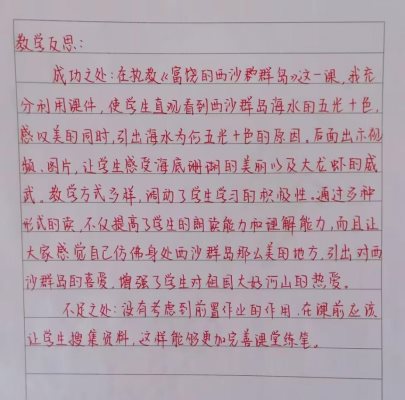 教学反思:
成功之处:在执教《富饶的西沙群岛》这一课,我充
分利用课件,使学生直观看到西沙群岛海水的五光十色,
感叹美的同时,引出海水为何五光十色的原因。后面出示视
频、图片,让学生感受海底珊瑚的美丽以及大龙虾的威
武。教学方式多样,调动了学生学习的积极性。通过多种
形式的读,不仅提高了学生的朗读能力和理解能力,而且让
大家感觉自己仿佛身处西沙群岛那么美的地方,引出对西
沙群岛的喜爱,增强了学生对祖国大好河山的热爱。
不足之处:没有考虑到前置作业的作用,在课前应该
让学生搜集资料,这样能够更加完善课堂练笔。